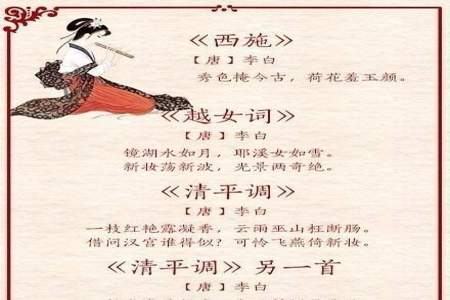 《西施》
【唐】李白
秀色掩今古，荷花羞玉颜。
《越女词》
【唐】李白
镜湖水如月，耶溪女如雪。
新妆荡新波，光景两奇绝。
《清平调》
【唐】李白
一枝红艳露凝香，云雨巫山枉断肠。
借问汉宫谁得似？可怜飞燕倚新妆。
《清平调》另一首
【唐】李白